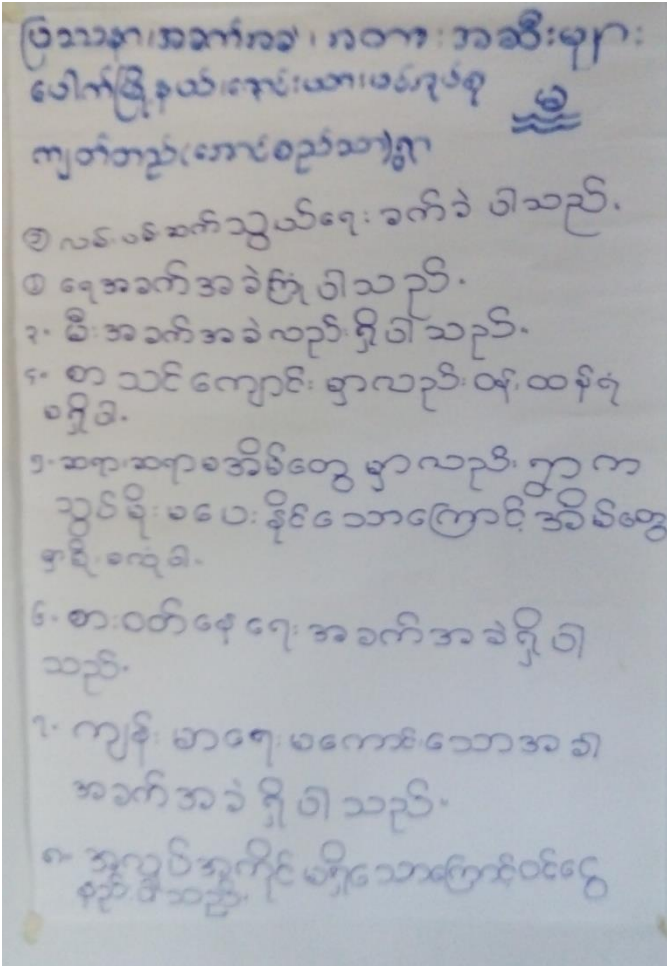 ပြဿနာ၊အခက်အခဲ၊ အတားအဆီးများ
ပေါက်မြို့နယ်၊
ကျတ်တည်(အောင်စည်သာ)ရွာ
၁ လမ်းပမ်းဆက်သွယ်ရေး ခက်ခဲ ပါသည်.
၂ ရေအခက်အခဲကြုံပါသည်.
၃. မီးအခက်အခဲလည်းရှိပါသည်.
၄. စာသင်ကျောင်း မှာလည်းဝန်ထမ်း
မရှိပါ.
၅. ဆရာ၊ဆရာမအိမ်တွေ မှာလည်း ရွာက
သွပ်မိုးမပေးနိုင်သောကြောင့် အိမ်တွေ
၆. စားဝတ်နေရေးအခက်အခဲရှိပါ
သည်.
၇. ကျန်းမာရေးမကောင်းသောအခါ
အခက်အခဲရှိပါသည်.
၈. အလုပ်အကိုင်မရှိသောကြောင့်ဝင်ငွေ
နည်းပါသည်.